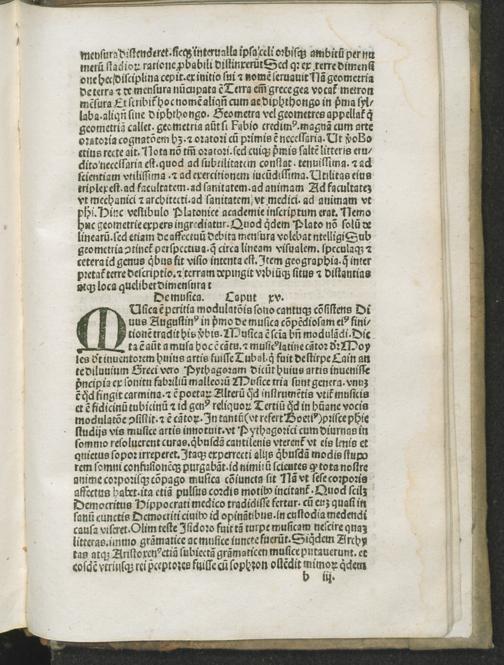 mensura distenderet. sicq; internalla ipsa celi orbisq; ambitū per nu
merū stadioꝝ ratione ꝓbabili distinxerūt Sed qꝛ ex terre dimensi
one hec disciplina cepit. ex initio sui ⁊ nomē seruauit Nā geometria
de terra ⁊ de mensura nūcupata ē Terra em̄ grece gea vocat᷑ metron
mēsura Et scribit᷑ hoc nomē aliqn̄ cum ae diphthongo in p̄ma syl/
laba. aliqn̄ sine diphthongo. Geometra vel geometres appellat᷑ q̇
geometriā callet. geometria aūt si Fabio credimꝰ. magnā cum arte
oratoria cognatōem hꝫ. ⁊ oratori cū primis ē necessaria. Ut ṽo Bo
etius recte ait. Nota nō tm̄ oratori. sed cuiq; p̄mis saltē litteris eru/
dito necessaria est. quod ad subtilitatem constat. tenuissima. ⁊ ad
scientiam vtilissima. ⁊ ad exercitionem iucūdissima. Utilitas eius
triplex est. ad facultatem. ad sanitatem. ad animam Ad facultatē
vt mechanici ⁊ architecti. ad sanitatem vt medici. ad animam vt
phi. Hinc vestibulo Platonice academie inscriptum erat. Nemo
huc geometrie expers ingrediatur. Quod q̇dem Plato nō solū de
linearū. sed etiam de affectuū debita mensura volebat intelligi Sub
geometria ↄtinet᷑ perspectiua. q̄ circa lineam visualem. specula q; ⁊
cetera id genus q̇bus fit visio intenta est. Item geographia. q̄ inter
pretat᷑ terre descriptio. ⁊ terram depingit vrbiūq; situs ⁊ distantias
atq; loca quelibet dimensura t
De musica. Caput xv.
MUsica ē peritia modulatōis sono cantuq; cōsistens Di
uus Augustinꝰ in p̄mo de musica cōpēdiosam eiꝰ fini/
tionē tradit his v̓bis. Musica ē sciā bn̄ modulādi. Dic
ta ē aūt a musa hoc ē cātu. ⁊ musicꝰ latine cātor dr̄ Moy
ses dt̄ inuentorem huius artis fuisse Tubal. q̇ fuit de stirpe Cain an
te diluuium Greci vero Pythagoram dicūt huius artis inuenisse
p̄ncipia ex sonitu fabriliū malleorū Musice tria sunt genera. vnuꝫ
ē qd̄ fingit carmina. ⁊ ē poetaꝝ Alterū qd̄ instrumētis vtit᷑ musicis
et ē fidicinū tubicinū ⁊ id genꝰ reliquoꝝ Tertiū qd̄ in hūane vocis
modulatōe ↄsistit. ⁊ ē cātoꝝ. In tantū (vt refert Boetiꝰ) prisce phie
studijs vis musice artis innotuit. vt Pythagorici cum diurnas in
somno resoluerent curas. q̇busdā cantilenis vterent᷑ vt eis lenis et
quietus sopor irreperet. Itaq; experrecti alijs q̇busdā modis stupo
rem somni confusionēq; purgabāt. id nimirū scientes ꝙ tota nostre
anime corporisq; cōpago musica cōiuncta sit Nā vt sese corporis
affectus habet. ita etiā pulsus cordis motibꝰ incitant᷑. Quod scilꝫ
Democritus Hippocrati medico tradidisse fertur. cū euꝫ quasi in
sanū cunctis Democriti ciuibꝰ id opinātibus. in custodia medendi
causa viseret. Olim teste Isidoro fuit tā turpe musicam nescire quaꝫ
litteras. immo grāmatice ac musice iuncte fuerūt. Siq̇dem Archy
tas atq; Aristoxenꝰ etiā subiectā grāmaticen musice putauerunt. et
eosdē vtriusq; rei p̄ceptores fuisse cū sophron ostēdit mimoꝝ q̇dem
b iij.